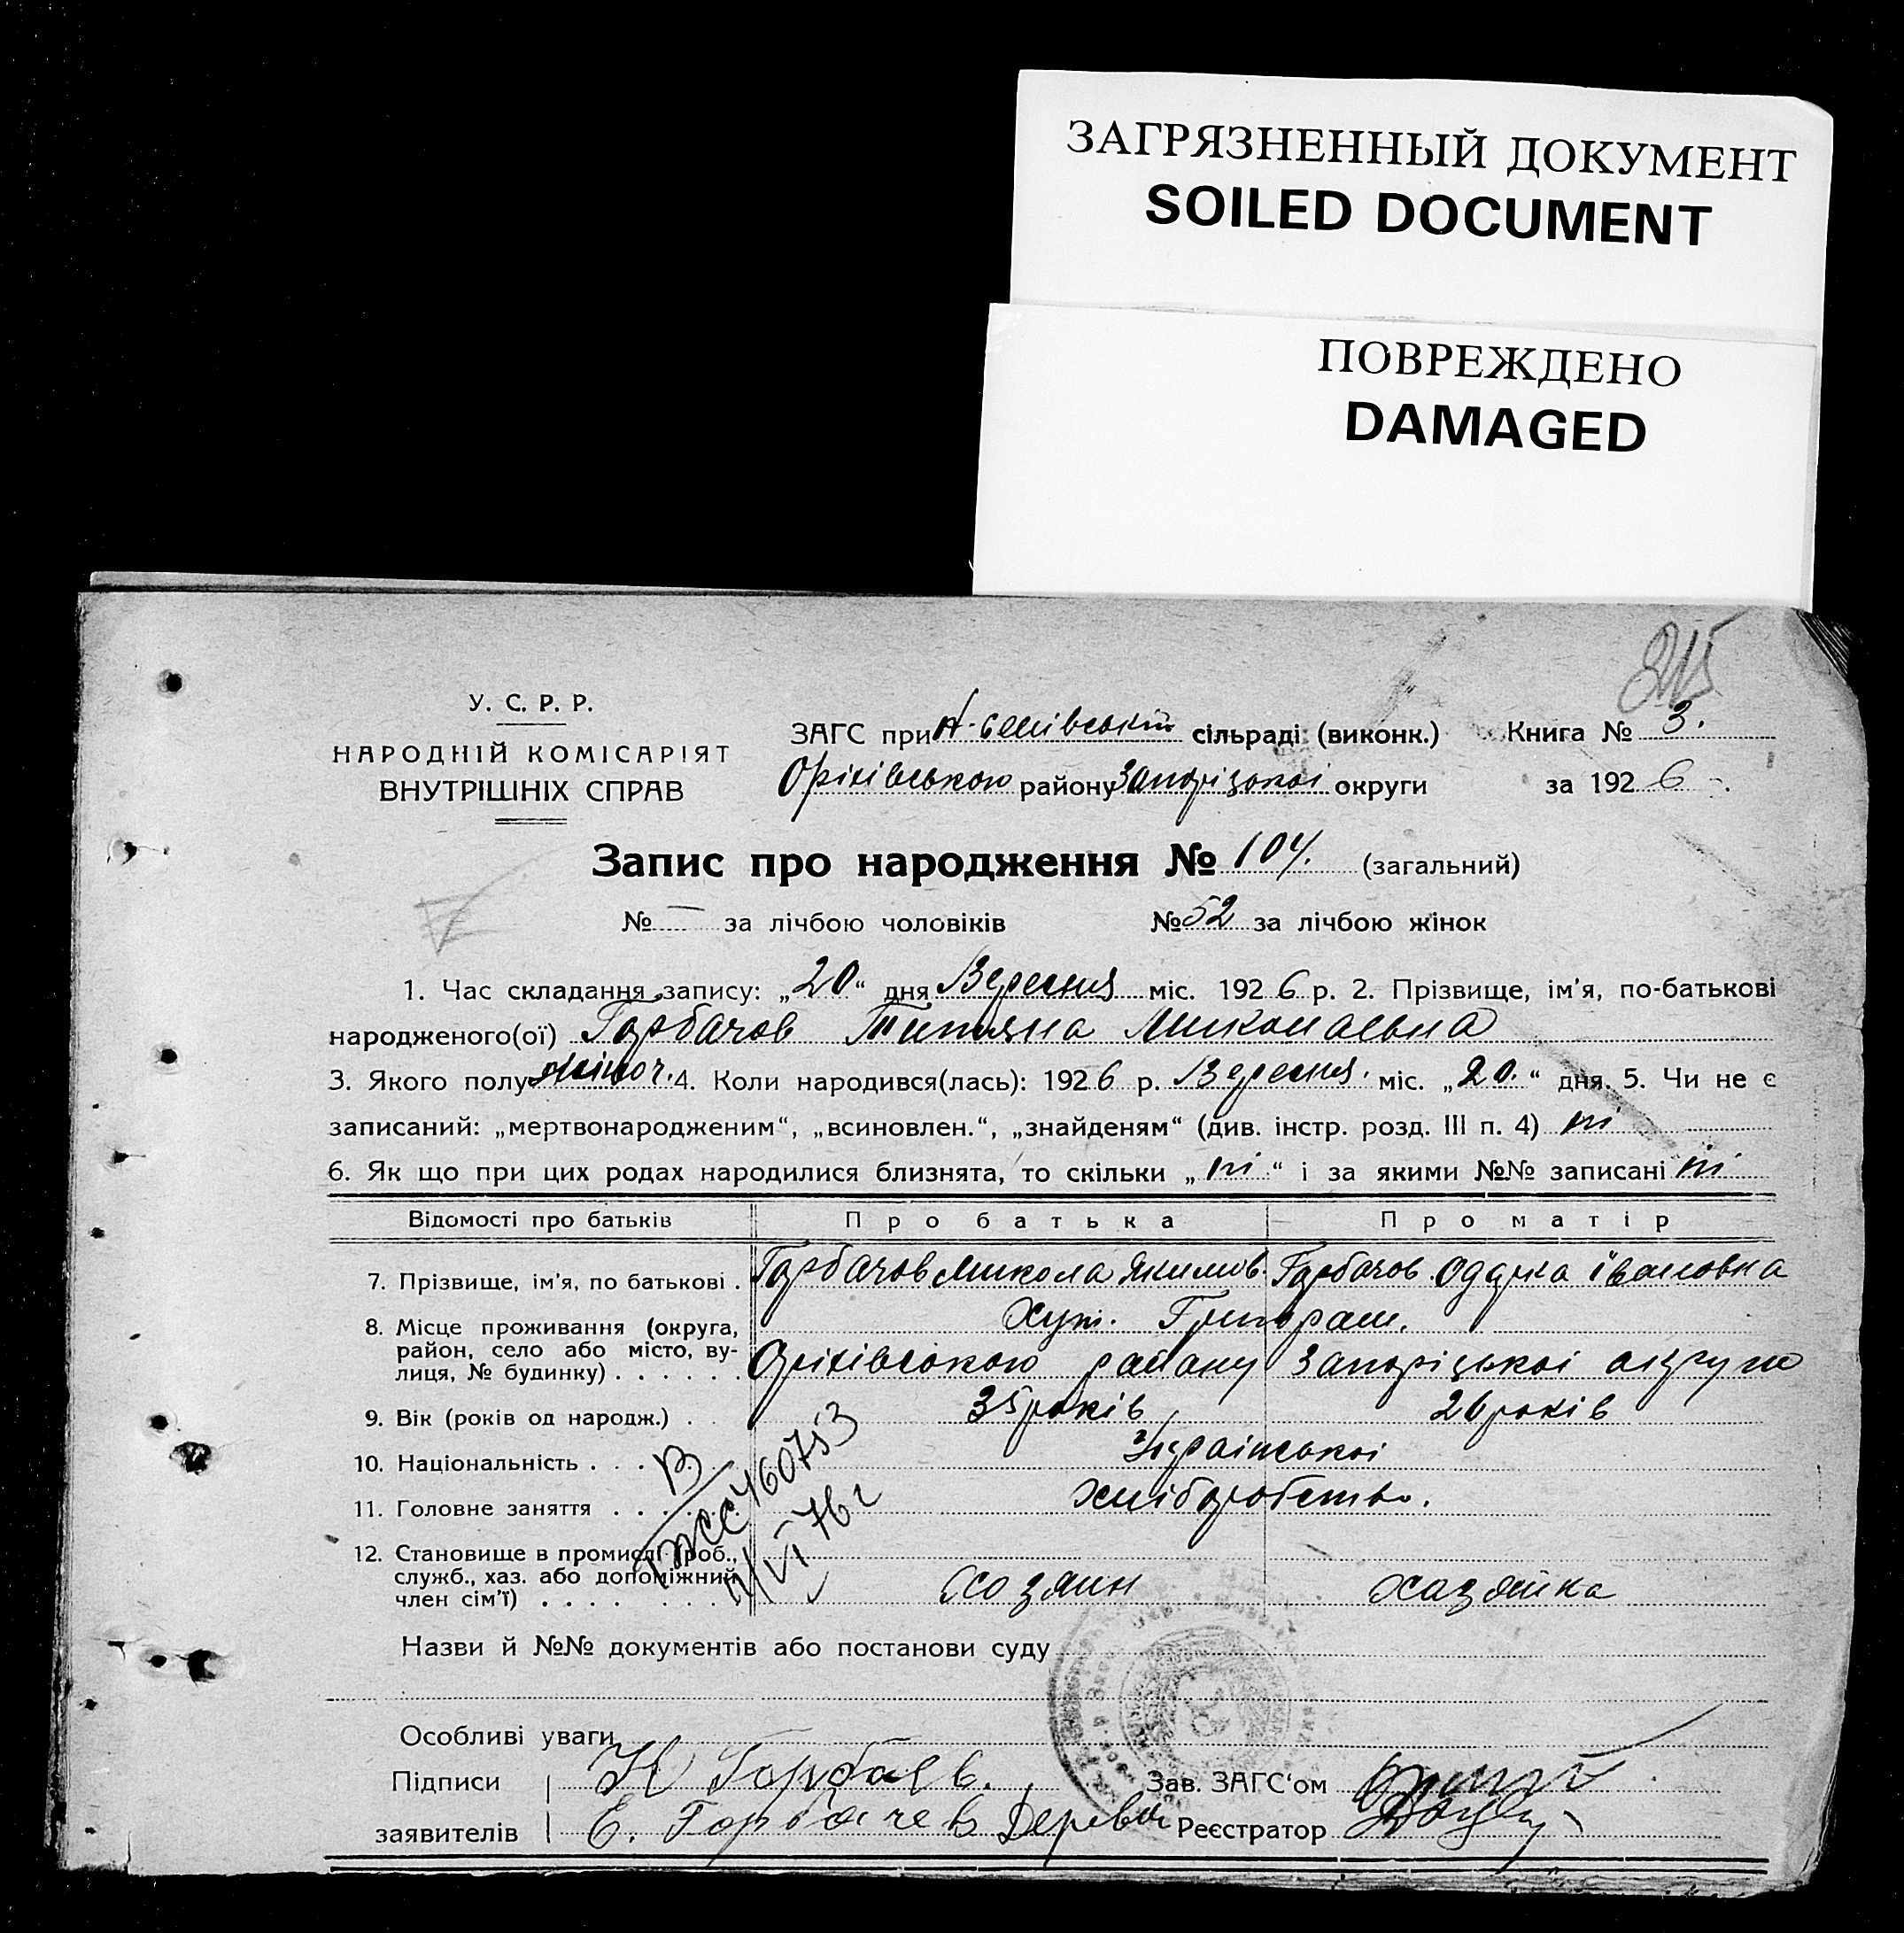 ЗАГРЯЗНЕННЫЙ ДОКУМЕНТ
SOILED DOCUMENT
ПОВРЕЖДЕНО
DAMAGED
215
У. С. Р. Р.
НАРОДНІЙ КОМІСАРІЯТ
ВНУТРІШНІХ СПРАВ
ЗАГС при сільраді (виконк.) Книга № 3.
Оріхівського району Запорізької округи за 1926
Запис про народження № 104. (загальний)
№ — за лічбою чоловіків № 52 за лічбою жінок
1. Час складання запису: „20“ дня Вересня міс. 1926 р. 2. Прізвище, ім'я, по-батькові
народженого(ої) Горбачов Титяна Миколаевна
3. Якого полу жіноч. 4. Коли народився(лась): 1926 р. Вересня. міс. „20.“ дня. 5. Чи не є
записаний: „мертвонародженим“, „всиновлен.“, „знайденям“ (див. інстр. розд. III п. 4) ні
6. Як що при цих родах народилися близнята, то скільки „ні“ і за якими №№ записані ні
Відомості про батьків Про батька Про матір
7. Прізвище, ім'я, по батькові . Горбачов Микола Якимов. Горбачов Одарка Івановна
8. Місце проживання (округа, Хут.
район, село або місто, ву-
лиця, № будинку) . . . . . . Оріхівського району Запоріцькоі округи
9. Вік (років од народж.) . 35 років 26 років
10. Національність . . . Українськоі
11. Головне заняття . . . Хліборобство.
12. Становище в промислі (роб.,
служб., хаз. або допоміжний
член сім'ї) . . . . Хозяин хазяйка
460753
VI 76 г
Назви й №№ документів або постанови суду
Особливі уваги
Підписи Н Горбачев. Зав. ЗАГС'ом
заявителів Е. Горбачев Реєстратор